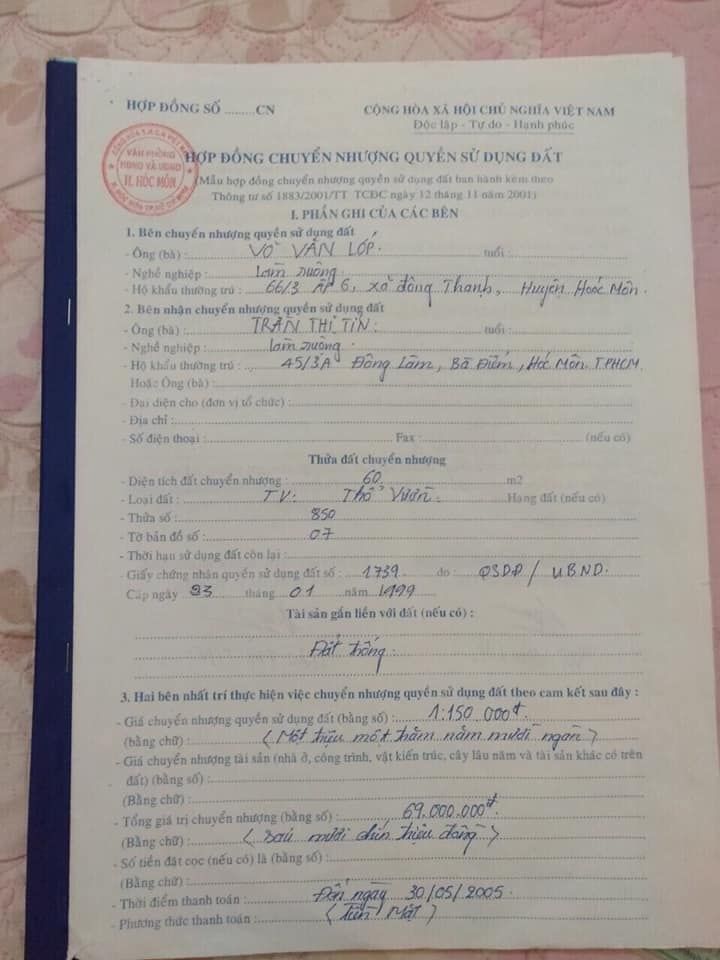 HỢP ĐỒNG SỐ ........CN
CỘNG HÒA XÃ HỘI CHỦ NGHĨA VIỆT NAM
Độc lập - Tự do - Hạnh phúc
VĂN PHÒNG
HĐND VÀ UBND
H. HÓC MÔN
HỢP ĐỒNG CHUYỂN NHƯỢNG QUYỀN SỬ DỤNG ĐẤT
(Mẫu hợp đồng chuyển nhượng quyền sử dụng đất ban hành kèm theo
Thông tư số 1883/2001/TT TCĐC ngày 12 tháng 11 năm 2001)
I. PHẦN GHI CỦA CÁC BÊN
1. Bên chuyển nhượng quyền sử dụng đất
- Ông (bà) : VÕ VĂN LỐP. tuổi :
- Nghề nghiệp : Làm ruộng.
- Hộ khẩu thường trú : 66/3 ẤP 6, xã đông Thạnh, Huyện Hoóc Môn.
2. Bên nhận chuyển nhượng quyền sử dụng đất
- Ông (bà) : TRẦN THỊ TIN. tuổi :
- Nghề nghiệp : làm ruộng.
- Hộ khẩu thường trú : 45/3A Đông Lân, Bà Điểm, Hóc Môn. TPHCM.
Hoặc Ông (bà) :
- Đại diện cho (đơn vị tổ chức) :
- Địa chỉ :
- Số điện thoại : Fax : (nếu có)
Thửa đất chuyển nhượng
- Diện tích đất chuyển nhượng : 60 m2
- Loại đất : TV: Thổ Vườn. Hạng đất (nếu có)
- Thửa số : 850
- Tờ bản đồ số : 07
- Thời hạn sử dụng đất còn lại :
- Giấy chứng nhận quyền sử dụng đất số : 1739 do : QSDĐ / UBND.
Cấp ngày 23 tháng 01 năm 1999
Tài sản gắn liền với đất (nếu có) :
Đất trống.
3. Hai bên nhất trí thực hiện việc chuyển nhượng quyền sử dụng đất theo cam kết sau đây :
- Giá chuyển nhượng quyền sử dụng đất (bằng số) : 1.150.000đ.
(bằng chữ) : (Một triệu một trăm năm mươi ngàn)
- Giá chuyển nhượng tài sản (nhà ở, công trình, vật kiến trúc, cây lâu năm và tài sản khác có trên
đất) (bằng số) :
(Bằng chữ) :
- Tổng giá trị chuyển nhượng (bằng số) : 69.000.000đ
(Bằng chữ) : (sáu mươi chín triệu đồng)
- Số tiền đặt cọc (nếu có) là (bằng số) :
(Bằng chữ) :
- Thời điểm thanh toán : Đến ngày 30/05/2005.
- Phương thức thanh toán : (tiền Mặt)